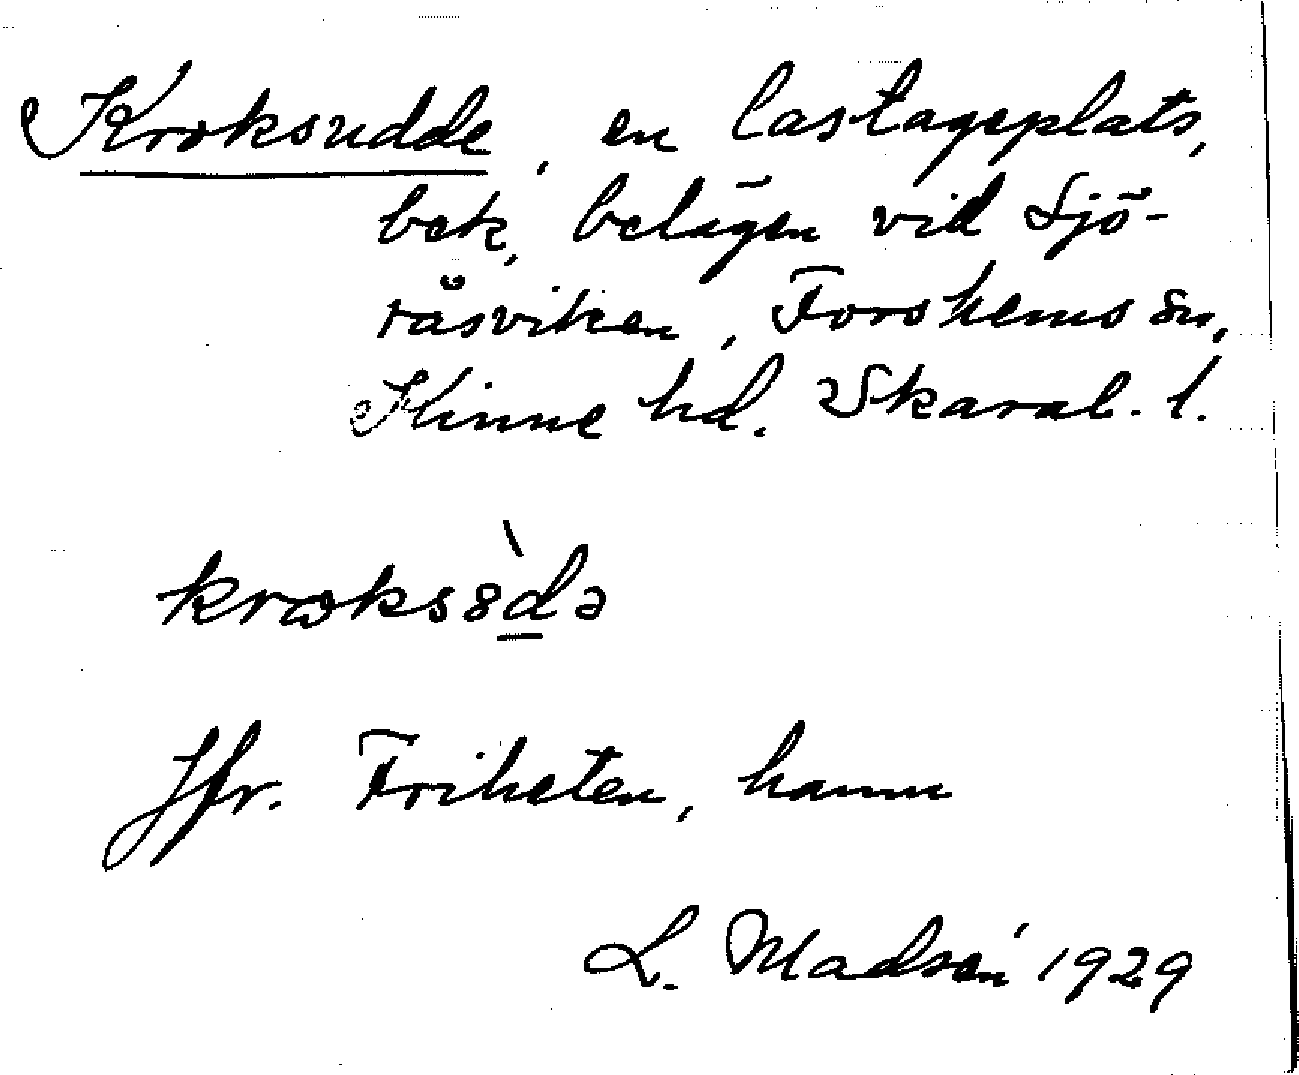 Kroksudde, en lastageplats,
bek, belägen vid Sjö-
råsviken, Forshems sn,
Kinne hd. Skarab. l.
krɷks8d̲̀ə
Jfr. Friheten, hamn
L. Madsén 1929